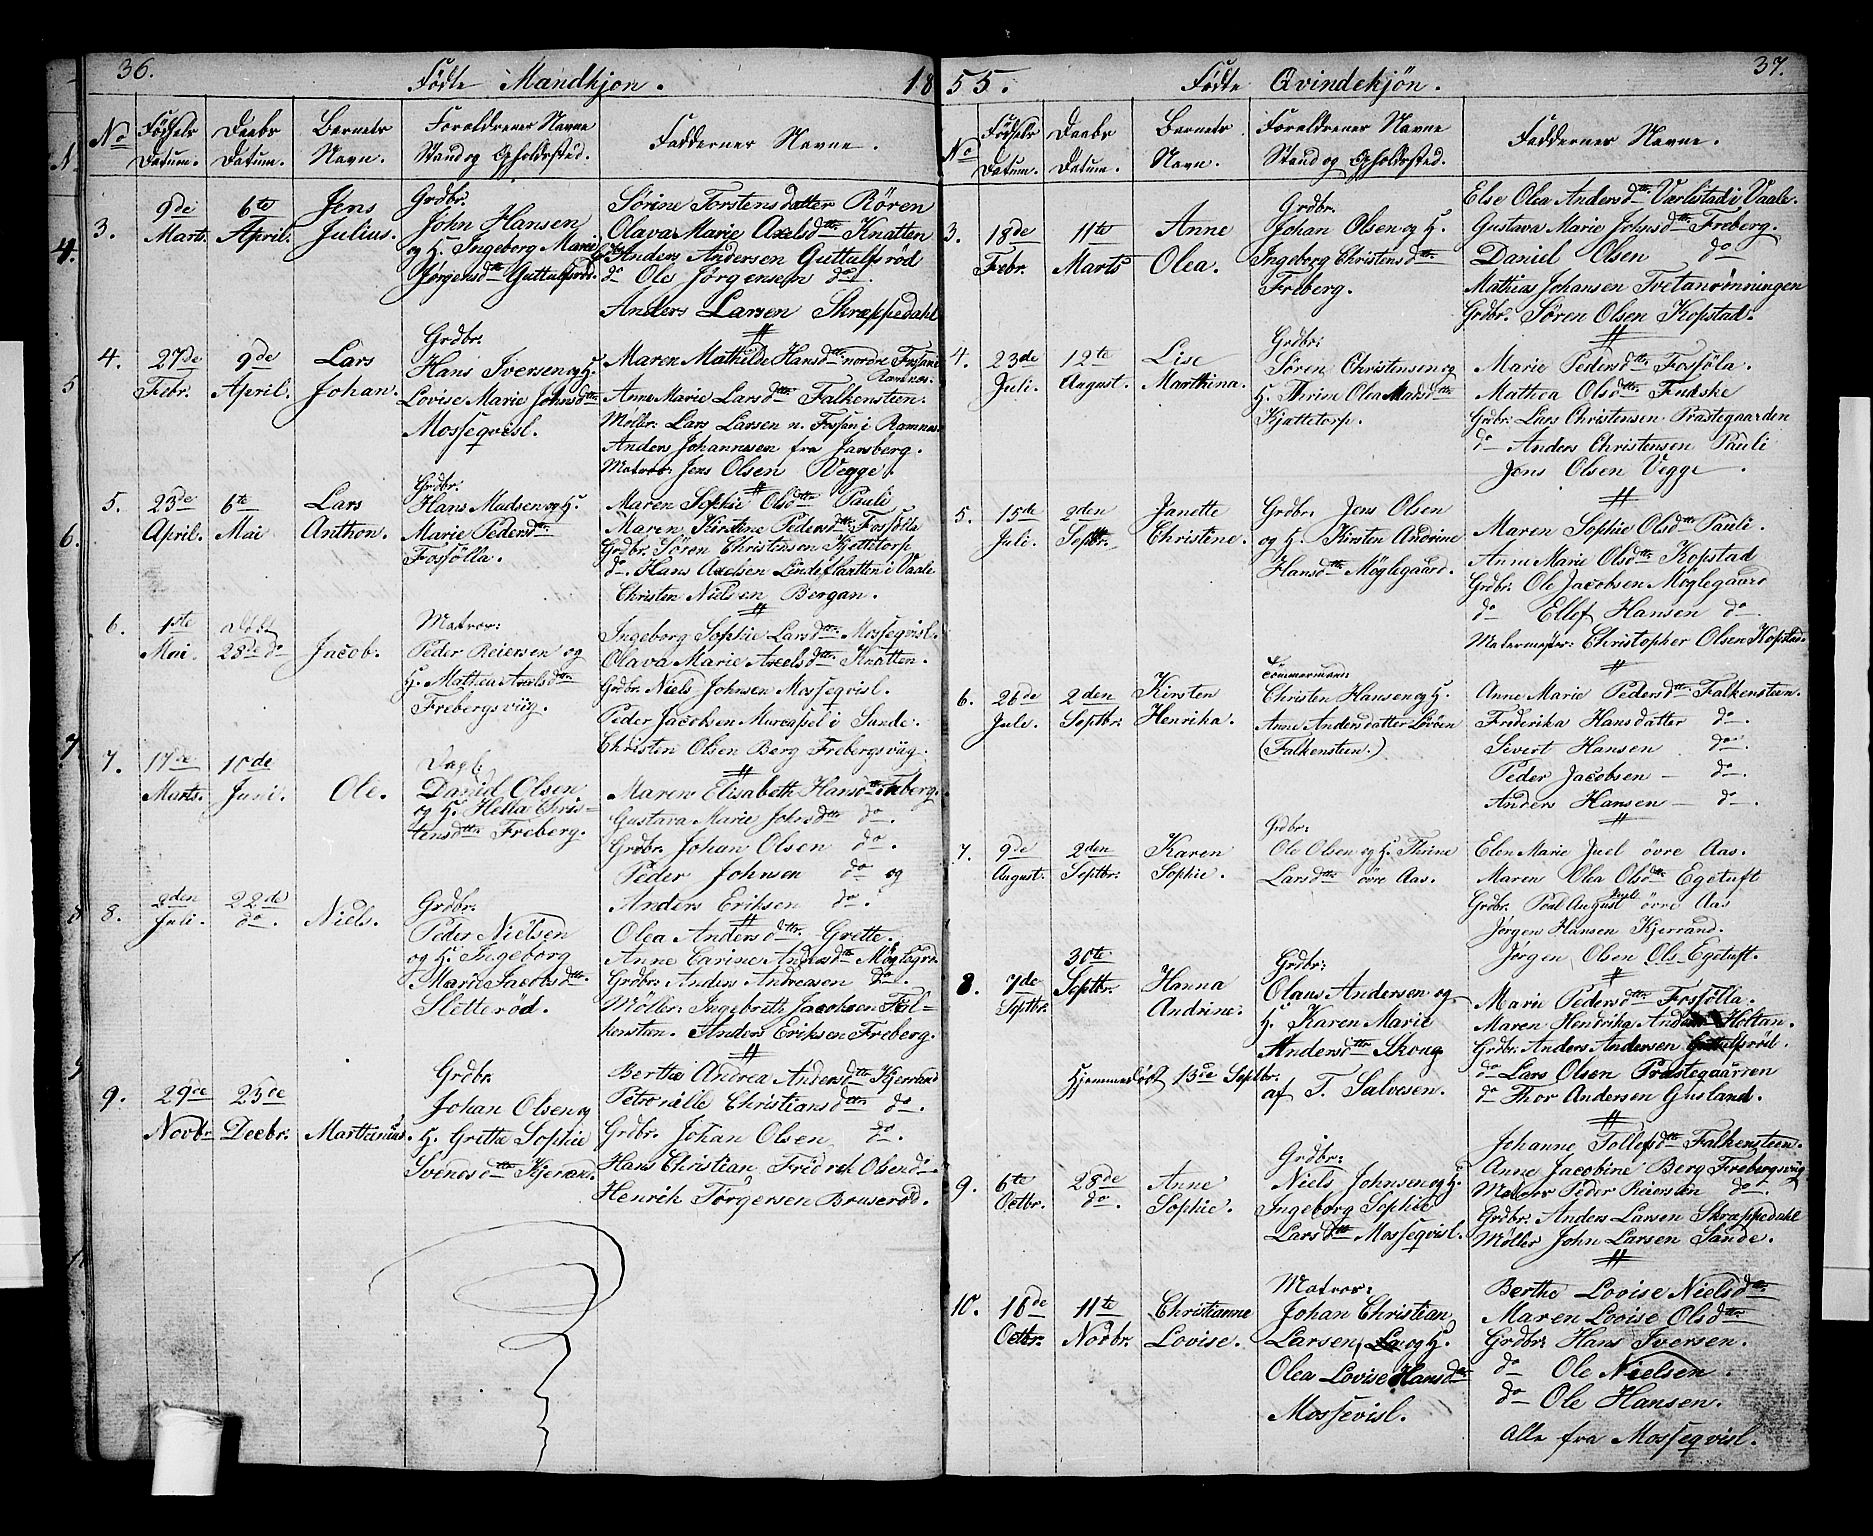 36.
Fødte Mandkjøn.
18
No
Fødsels Datum.
Daabs Datum.
Barnets Navn.
Forældrenes Navne Stand og Opholdssted.
Faddernes Navne.
3.
9de Marts.
6te April.
Jens Julius.
Grdbr.
John Hansen
og H. Ingeborg Marie
Jørgensdtr Guttulfsrød.
Sørine Torstensdatter Røren
Olava Marie Axelsdtr Knatten
Anders Andersen Guttulfsrød
do Ole Jørgensen do.
Anders Larsen Skræppedahl
4.
27de Febr.
9de April.
Lars Johan.
Grdbr.
Hans Iversen og H.
Lovise Marie Johnsdtr
Mosseqvisl.
Maren Mathilde Hansdtr nordre Fossan i
Ramnes.
Anne Marie Larsdtr Falkensten.
Møller Lars Larsen n. Fossan i Ramnes
Anders Johannesen fra Jarsberg.
Matros: Jens Olsen Vegge.
5.
23de April.
6te Mai
Lars Anthon.
Grdbr.
Hans Madsen og H.
Marie Pedersdtr
Fosfölla.
Maren Sophie Olsdtr Pauli
Maren Kirstine Pedersdtr Fosfölla
Grdbr. Sören Christensen Kjettetorp
do. Hans Axelsen Lindeflaatten i Vaale
Christen Nielsen Bergan.
6.
1ste Mai
28de do
Jacob.
Matros:
Peder Reiersen og
H. Mathea Axelsdtr
Frebergsviig.
Ingeborg Sophie Larsdtr Mosseqvisl.
Olava Marie Axelsdtr Knatten.
Grdbr. Niels Johnsen Mosseqvisl.
Peder Jacobsen Murcassel i Sande.
Christen Olsen Berg Frebergsviig.
7.
17de Marts.
10de Juni.
Ole.
Dagl.
David Olsen
og H. Hella Chris-
tensdtr Freberg.
Maren Elisabeth Hansdtr Freberg.
Gustava Marie Johnsdtr do.
Grdbr. Johan Olsen do.
Peder Johnsen do og
Anders Eriksen do.
8.
2den Juli.
22de do.
Niels.
Grdbr.
Peder Nielsen
og H. Ingeborg
Marie Jacobsdtr
Sletterød.
Olea Andersdtr Grette.
Anne Carine Andersdtr Møglegrd.
Grdbr. Anders Andreasen do.
Møller: Ingebreth Jacobsen Fal-
kensten. Anders Eriksen Freberg.
9.
29de Novbr.
25de Decbr.
Marthinius.
Grdbr.
Johan Olsen og
H. Grethe Sophie
Svendsdtr Kjerran
Berthe Andrea Andersdtr Kjerrand
Petronille Christiansdtr do.
Grdbr. Johan Olsen do.
Hans Christian Fridrich Olsen do
Henrik Tørgersen Bruserød.
55.
Fødte Qvindekjön.
37.
No
Fødsels Datum.
Daabs Datum.
Barnets Navn.
Forældrenes Navne Stand og Opholdssted.
Faddernes Navne.
3.
18de Febr.
11te Marts
Anne Olea.
Grdbr.
Johan Olsen og H.
Ingeborg Christensdtr
Freberg.
Else Olea Andersdtr Værlistad i Vaale.
Gustava Marie Johnsdtr Freberg.
Daniel Olsen do
Mathias Johansen Tretanrønningen
Grdbr. Sören Olsen Kopstad.
4.
23de Juli.
12te August.
Lise Marthina.
Grdbr:
Sören Christensen og
H. Thrine Olea Madsdtr
Kjættetorp.
Marie Pedersdtr Fosföla.
Mathea Olsdtr Fudske
Grdbr: Lars Christensen Præstegaarden
do Anders Christensen Pauli
Jens Olsen Vegge.
5.
15de Juli.
2den Septbr.
Janette Christine.
Grdbr. Jens Olsen
og H. Kirsten Andrine
Hansdtr Møglegaard.
Maren Sophie Olsdtr Pauli.
Anne Marie Olsdtr Kopstad
Grdbr. Ole Jacobsen Møglegaard
do Ellef Hansen do
Matermester: Christopher Olsen Kopstad.
6.
26de Juli.
2den Septbr.
Kirsten Henrika.
Tömmermand:
Christen Hansen og H.
Anne Andersdatter Lövöen
(Falkensteen.)
Anne Marie Pedersdtr Falkensteen.
Frederika Hansdatter do.
Sivert Hansen do
Peder Jacobsen do.
Anders Hansen do.
7.
9de August.
2den Septbr.
Karen Sophie.
Grdbr:
Ole Olsen og H. Thrine
Larsdtr övre Aas.
Elen Marie Juel övre Aas.
Maren Olea Olsdtr Egetuft
Grdbr. Poul August Juel övre Aas
Jørgen Hansen Kjerrand.
Jørgen Olsen Ols Egetuft.
8.
7de Septbr.
30te Septbr.
Hanna Andrine.
Grdbr:
Olaus Andersen og
H. Karen Marie
Andersdtr Skoug
Hjemmedöbt 13de Septbr. af T. Salvesen.
Marie Pedersdtr Fosfölla.
Maren Hendrika Anders Holtan.
Grdbr. Anders Andersen Guttulfsröd.
do Lars Olsen Præstegaarren
do Thor Andersen Gusland.
9.
6te Octbr.
28de do.
Anne Sophie.
Grdbr:
Niels Johnsen og H.
Ingeborg Sophie
Larsdtr Mosseqvisl.
Johanne Tollefsdtr Falkensteen.
Anne Jacobine Berg Frebergsviig
Matros Peder Reiersen do.
Grdbr. Anders Larsen Skræppedahl
Møller John Larsen Sande.
10.
16de Octbr.
11te Novbr.
Christianne Lovise.
Matros:
Johan Christian
Larsen, og H.
Olea Lovise Hansdtr
Mossevisl.
Berthe Lovise Nielsdtr
Maren Lovise Olsdtr
Grdbr: Hans Iversen.
do Ole Nielsen.
do Ole Hansen.
Alle fra Mosseqvisl.